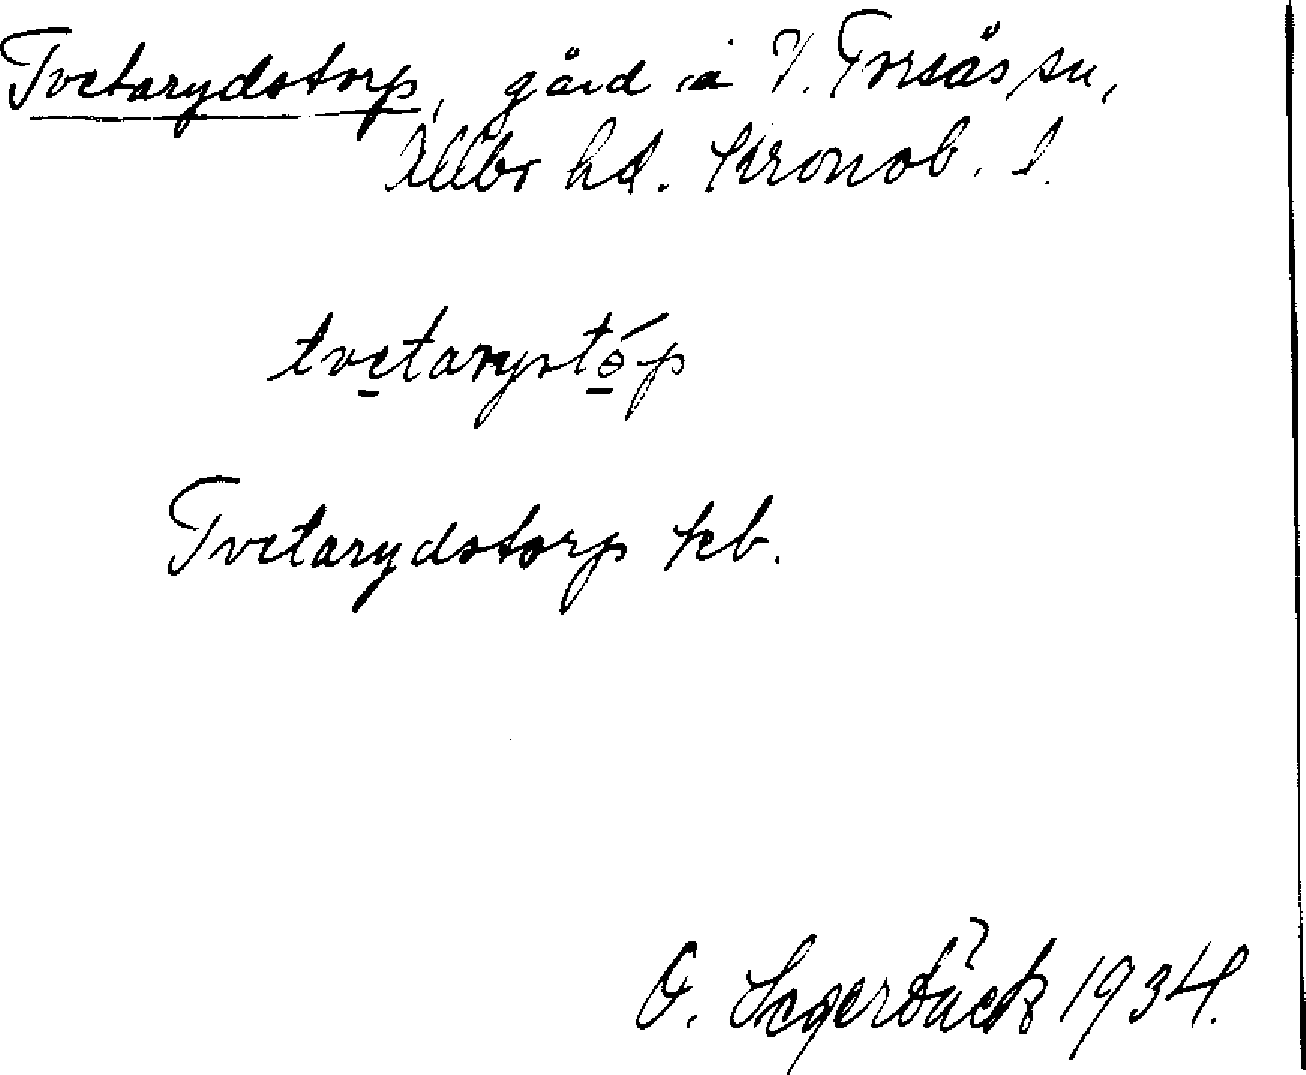 Tvetarydstorp, gård i V. Torsås sn,
Allbo hd. Kronob. l.
tvetarystóp
Tvetarydstorp kb.
O. Segerbäck 1934.